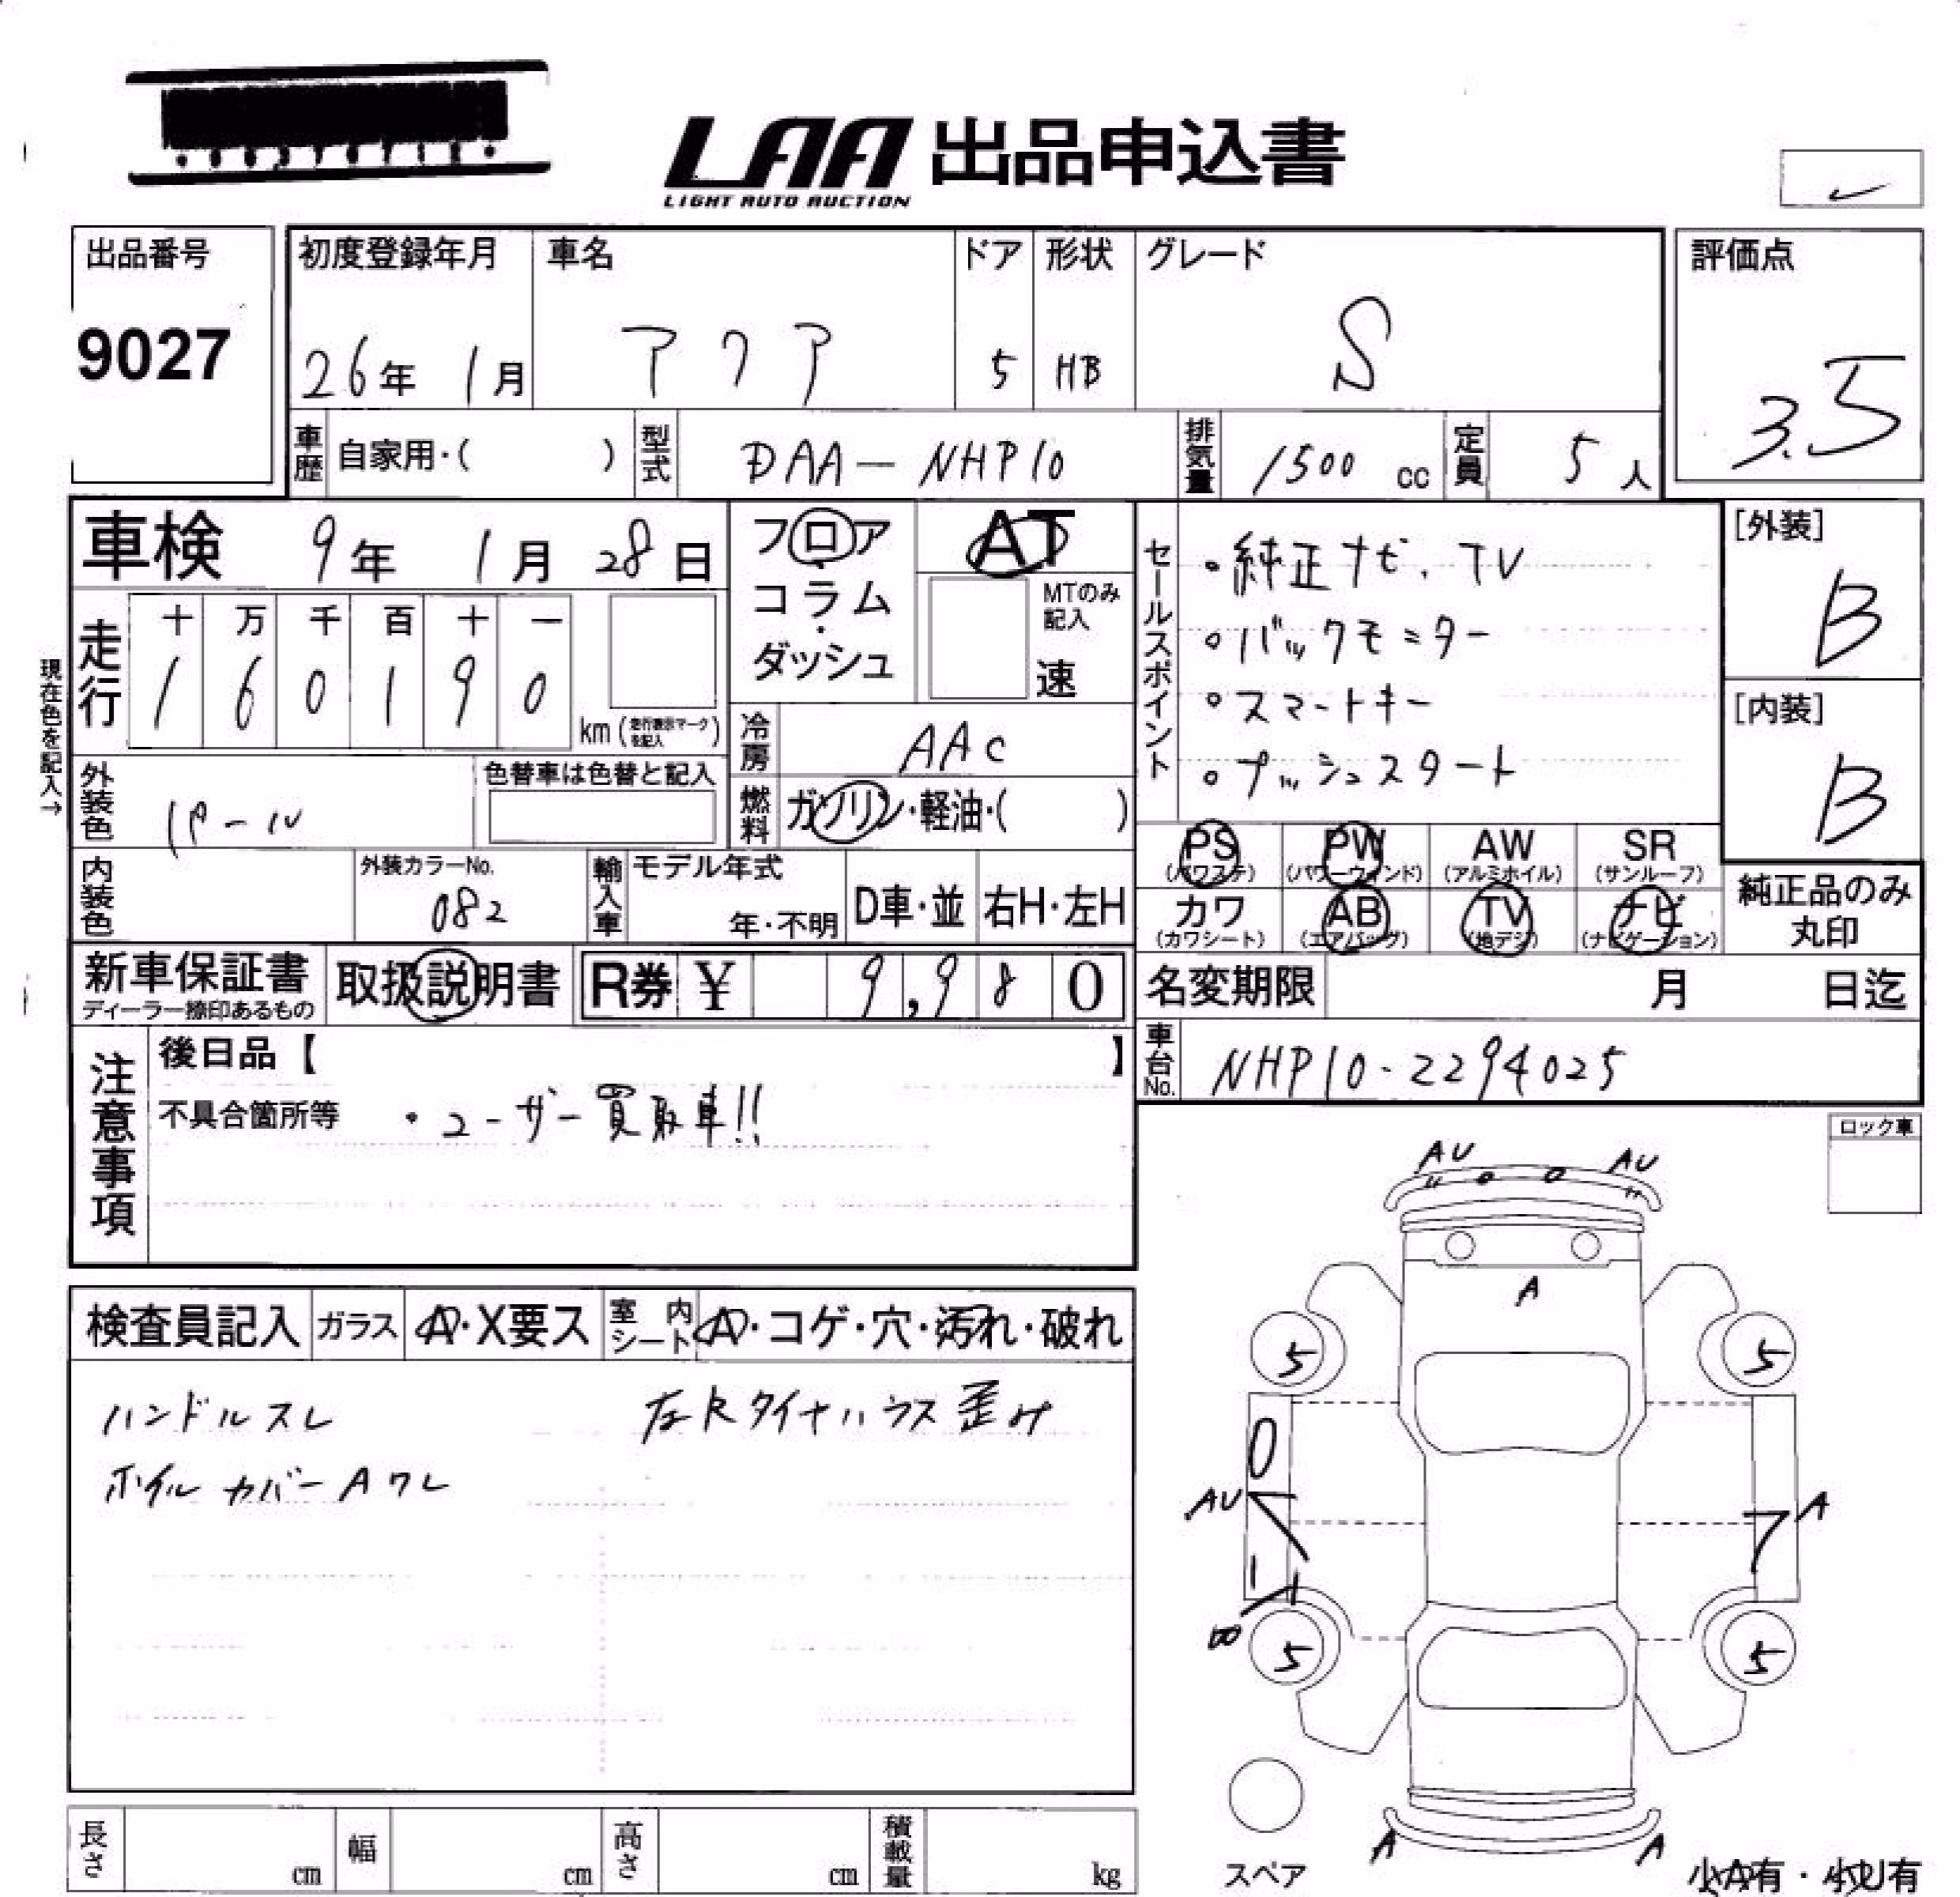 LAA 出品申込書
LIGHT AUTO AUCTION
出品番号
9027
初度登録年月
26年 1月
車名
アクア
ドア
5
形状
HB
グレード
S
評価点
3.5
車歴 自家用・( )
型式 DAA-NHP10
排気量 1500 cc
定員 5人
車検 9年 1月 28日
フロア
コラム・
ダッシュ
AT
MTのみ記入
速
セールスポイント
・純正ナビ、TV
・バックモニター
・スマートキー
・プッシュスタート
[外装]
B
[内装]
B
現在色を記入→
走行
十 万 千 百 十 一
1 6 0 1 9 0
km (走行表示マークを記入)
冷房 AAC
外装色 パール
色替車は色替と記入
燃料 ガソリン・軽油・( )
PS AW SR PW
(パワステ) (パワーウィンド) (アルミホイル) (サンルーフ)
カワ AB TV ナビ
(カワシート) (エアバッグ) (地デジ) (ナビゲーション)
純正品のみ
丸印
内装色
外装カラーNo.
082
輸入車
モデル年式
年・不明
D車・並
右H・左H
新車保証書
ディーラー捺印あるもの
取扱説明書
R券 ¥ 9,980
名変期限 月 日迄
車台No. NHP10-2294025
注意事項
後日品【 】
不具合箇所等 ・ユーザー買取車!!
ロック車
検査員記入
ガラス A・X要ス
室内シート A・コゲ・穴・汚れ・破れ
ハンドルスレ 左Rタイヤハウス歪み
ホイルカバーAワレ
AU AU
A
5 5
AU A
B
5 5
A A
スペア
小A有・小U有
長さ cm
幅 cm
高さ cm
積載量 kg